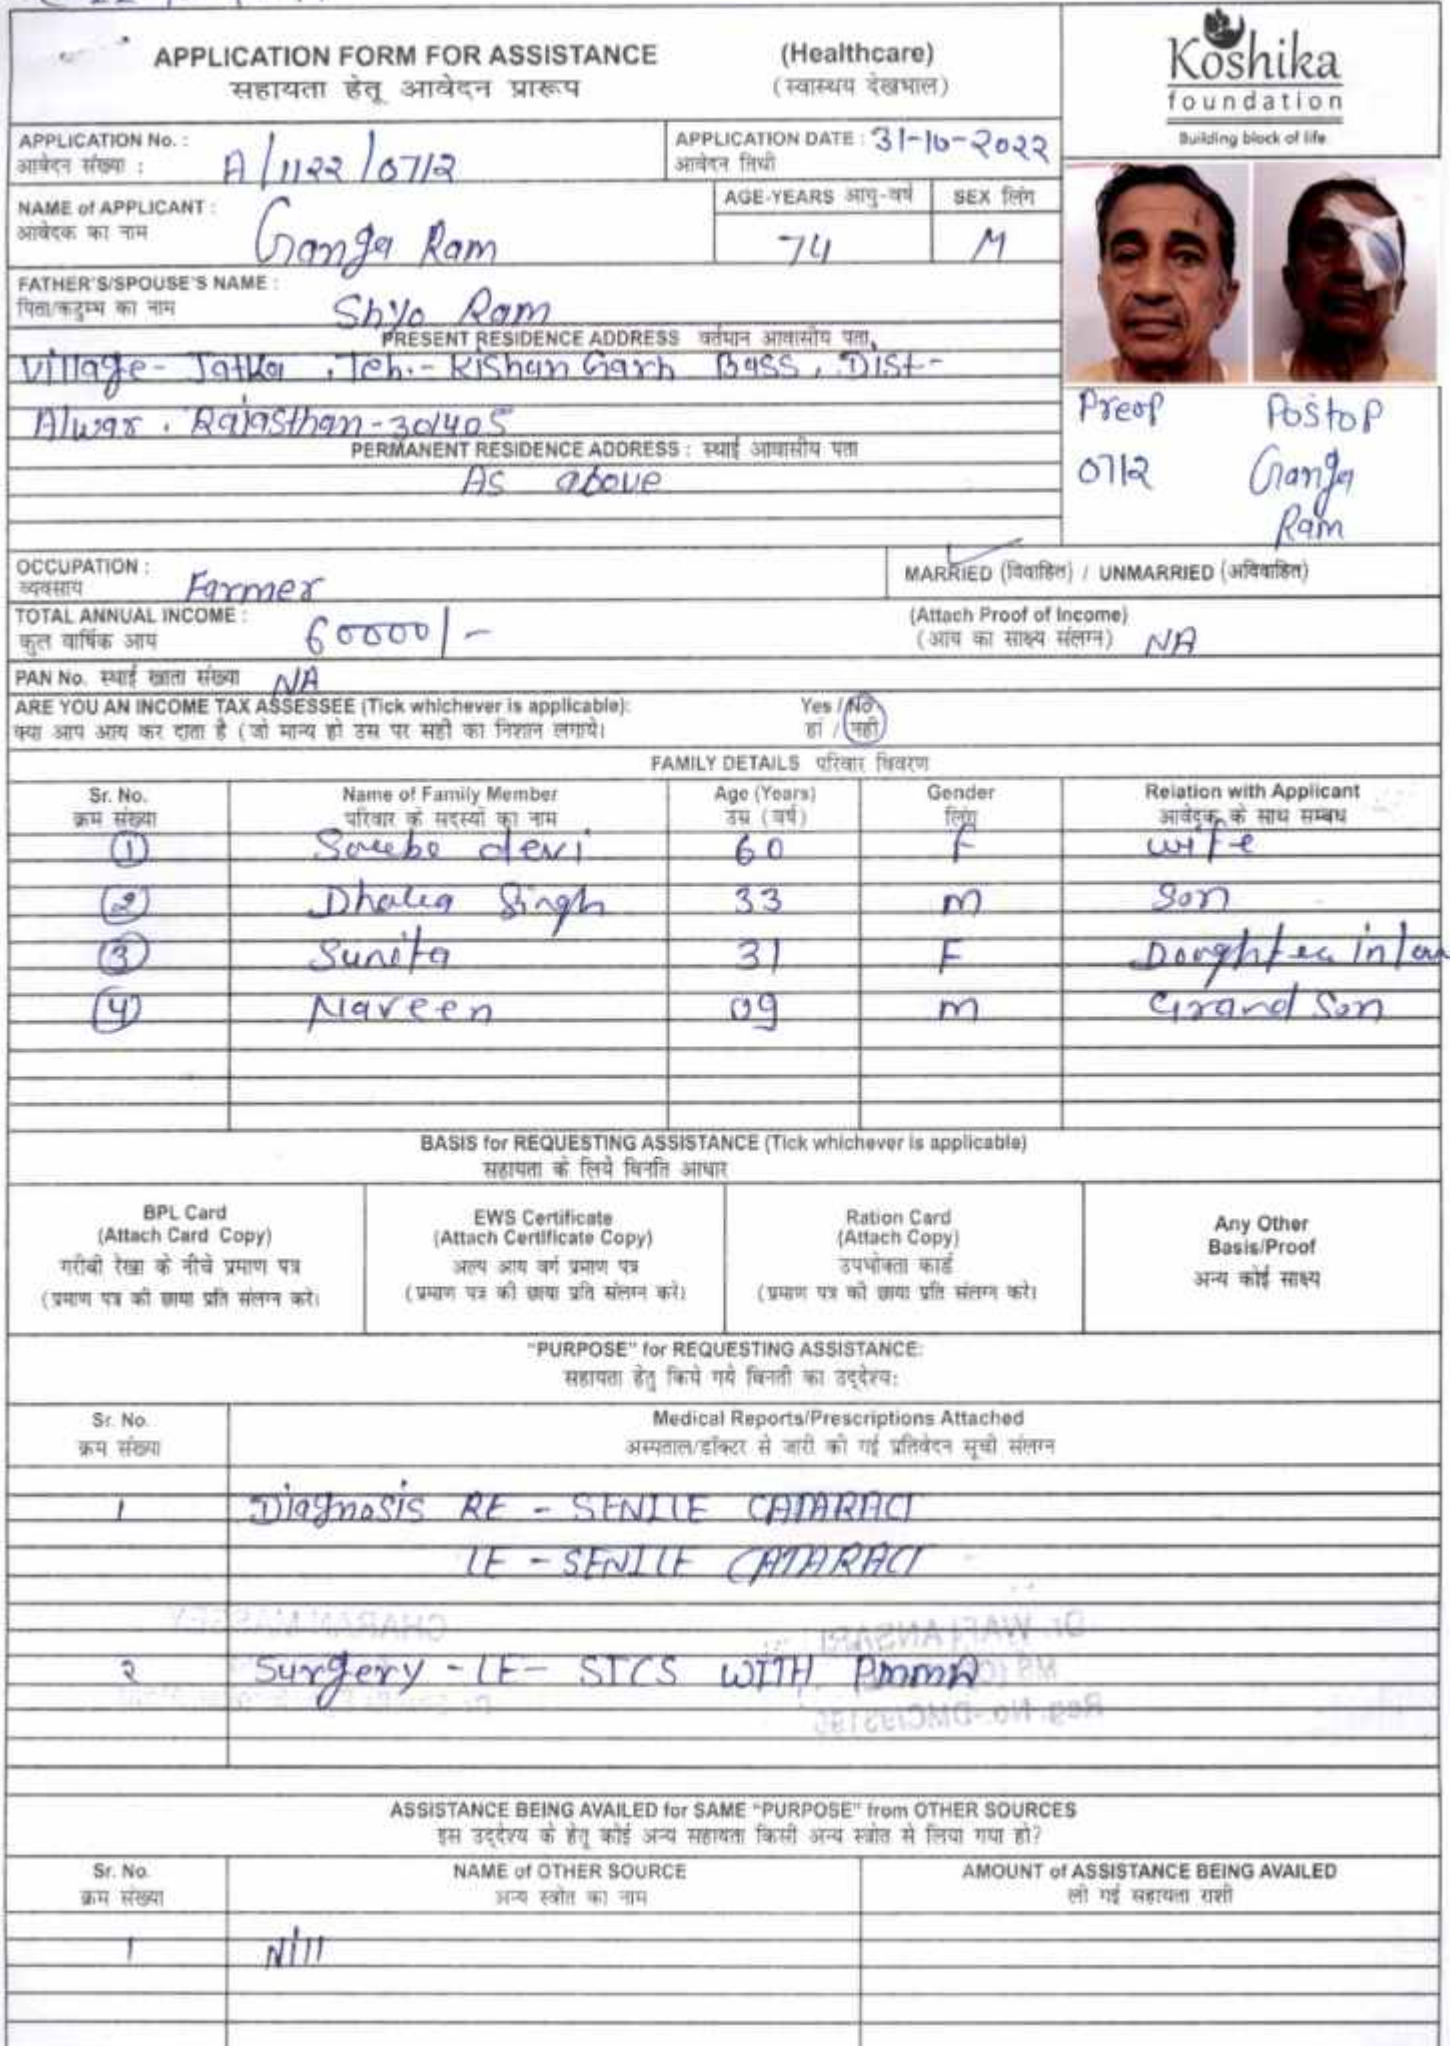 APPLICATION FORM FOR ASSISTANCE (Healthcare)
सहायता हेतू आवेदन प्रारूप (स्वास्थय देखभाल)
Koshika
foundation
Building block of life
APPLICATION No. : A/1122/0712
आवेदन संख्या :
APPLICATION DATE : 31-10-2022
आवेदन तिथी
NAME of APPLICANT : Ganga Ram
आवेदक का नाम
AGE-YEARS आयु-वर्ष 74
SEX लिंग M
FATHER'S/SPOUSE'S NAME : Shyo Ram
पिता/कटुम्भ का नाम
PRESENT RESIDENCE ADDRESS वर्तमान आवासीय पता
Village- Jatka , Teh.- Kishan Garh Bass, Dist-
Alwar . Rajasthan-301405
PERMANENT RESIDENCE ADDRESS : स्थाई आवासीय पता
As above
Preop Postop
0712 Ganga
Ram
OCCUPATION : Farmer
व्यवसाय
MARRIED (विवाहित) / UNMARRIED (अविवाहित)
TOTAL ANNUAL INCOME : 60000/-
कुल वार्षिक आय
(Attach Proof of Income)
(आय का साक्ष्य संलग्न) NA
PAN No. स्थाई खाता संख्या NA
ARE YOU AN INCOME TAX ASSESSEE (Tick whichever is applicable): Yes / No
क्या आप आय कर दाता है (जो मान्य हो उस पर सही का निशान लगाये। हां / नही
FAMILY DETAILS परिवार विवरण
Sr. No. Name of Family Member Age (Years) Gender Relation with Applicant
क्रम संख्या परिवार के सदस्यों का नाम उम्र (वर्ष) लिंग आवेदक के साथ सम्बध
1 devi 60 F wife
2 Singh 33 M Son
3 Sunita 31 F Doughter in law
4 Naveen 09 M Grand Son
BASIS for REQUESTING ASSISTANCE (Tick whichever is applicable)
सहायता के लिये विनति आधार
BPL Card
(Attach Card Copy)
गरीबी रेखा के नीचे प्रमाण पत्र
(प्रमाण पत्र की छाया प्रति संलग्न करे।
EWS Certificate
(Attach Certificate Copy)
अल्य आय वर्ग प्रमाण पत्र
(प्रमाण पत्र की छाया प्रति संलग्न करे।
Ration Card
(Attach Copy)
उपभोक्ता कार्ड
(प्रमाण पत्र की छाया प्रति संलग्न करे।
Any Other
Basis/Proof
अन्य कोई साक्ष्य
"PURPOSE" for REQUESTING ASSISTANCE:
सहायता हेतु किये गये विनती का उद्देश्य:
Sr. No. Medical Reports/Prescriptions Attached
क्रम संख्या अस्पताल/डॉक्टर से जारी की गई प्रतिवेदन सूची संलग्न
1 Diagnosis RE - SENILE CATARACT
LE - SENILE CATARACT
2 Surgery - LE- SICS WITH PMMA
ASSISTANCE BEING AVAILED for SAME "PURPOSE" from OTHER SOURCES
इस उद्देश्य के हेतु कोई अन्य सहायता किसी अन्य स्त्रोत से लिया गया हो?
Sr. No. NAME of OTHER SOURCE AMOUNT of ASSISTANCE BEING AVAILED
क्रम संख्या अन्य स्त्रोत का नाम ली गई सहायता राशी
1 Nill